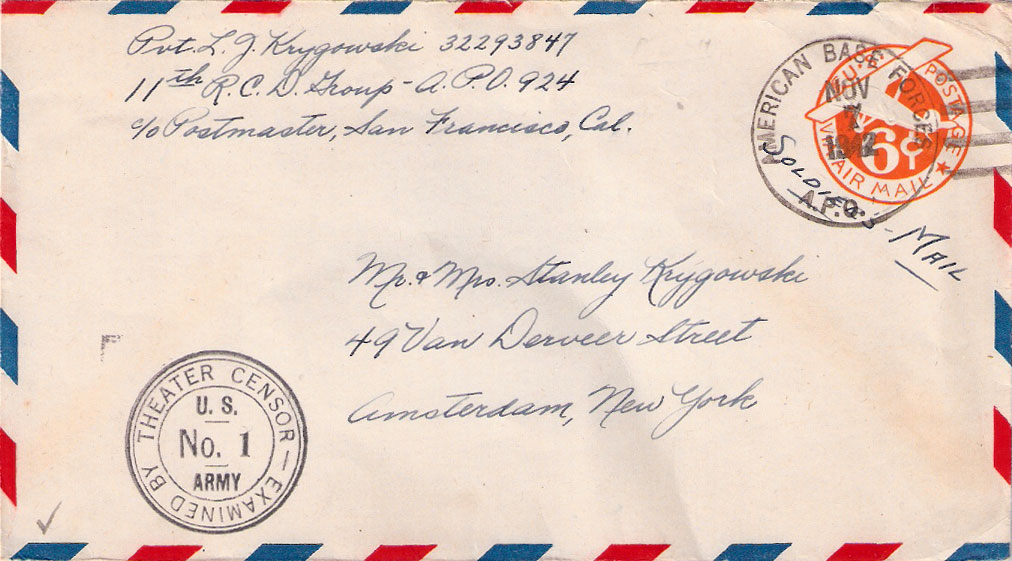 Pvt. L. J. Krygowski 32293847
11th R.C.D. Group - A.P.O. 924
c/o Postmaster, San Francisco, Cal.
AMERICAN BASE FORCES
A.P.O.
NOV
7
1942
U.S. POSTAGE
VIA AIR MAIL
6¢
SOLDIER'S - MAIL
Mr. & Mrs. Stanley Krygowski
49 Van Derveer Street
Amsterdam, New York
EXAMINED BY THEATER CENSOR
U.S.
No. 1
ARMY